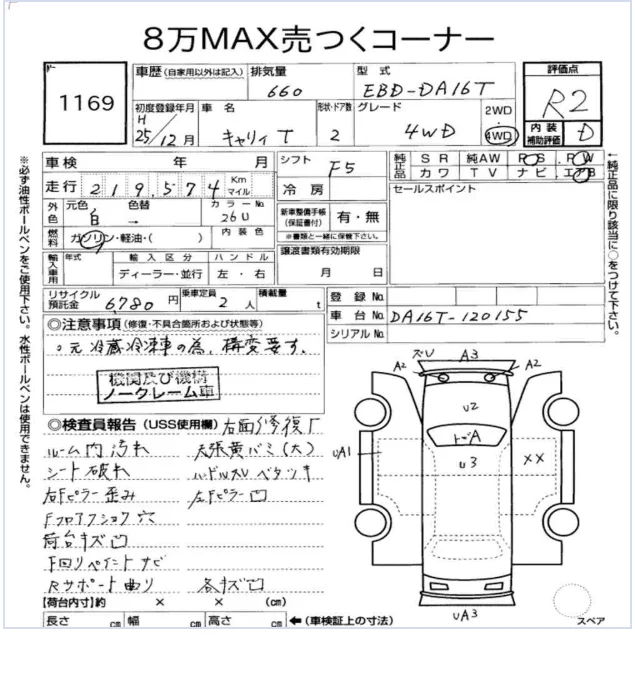 8万MAX売つくコーナー
1169
車歴(自家用以外は記入) 排気量 660 型式 EBD-DA16T
評価点 R2
内装補助評価 D
初度登録年月 H 25/12月 車名 キャリィT 形状・ドア数 2 グレード 4WD 2WD 4WD
車検 年 月 シフト F5
純正品 SR 純AW PS PW
カワ TV ナビ エアB
走行 219,574 Km マイル 冷房
セールスポイント
外色 元色 白 色替 カラーNo. 26U
新車整備手帳(保証書付) 有・無
※書類と一緒に保管下さい。
燃料 ガソリン・軽油・( ) 内装色
譲渡書類有効期限
月 日
輸入車用 年式 輸入区分 ディーラー・並行 ハンドル 左・右
リサイクル預託金 6780円 乗車定員 2人 積載量 t
登録No.
車台No. DA16T-120155
シリアルNo.
◎注意事項(修復・不具合箇所および状態等)
○元冷蔵冷凍車の為、構変要す。
機関及び機構
ノークレーム車
◎検査員報告(USS使用欄) 右面修復有
ルーム内汚れ 天張黄バミ(大)
シート破れ ハンドルスレベタツキ
右Fピラー歪み 左Fピラー凹
Fフロアフショク穴
荷台キズ凹
下回リペイントサビ
Rサポート曲り 各キズ凹
【荷台内寸】約 × × (cm)
長さ cm 幅 cm 高さ cm ←(車検証上の寸法)
A3
A2
A2
U2
UA1
U3
XX
UA3
スペア
※必ず油性ボールペンをご使用下さい。水性ボールペンは使用できません。
←純正品に限り該当に○をつけて下さい。